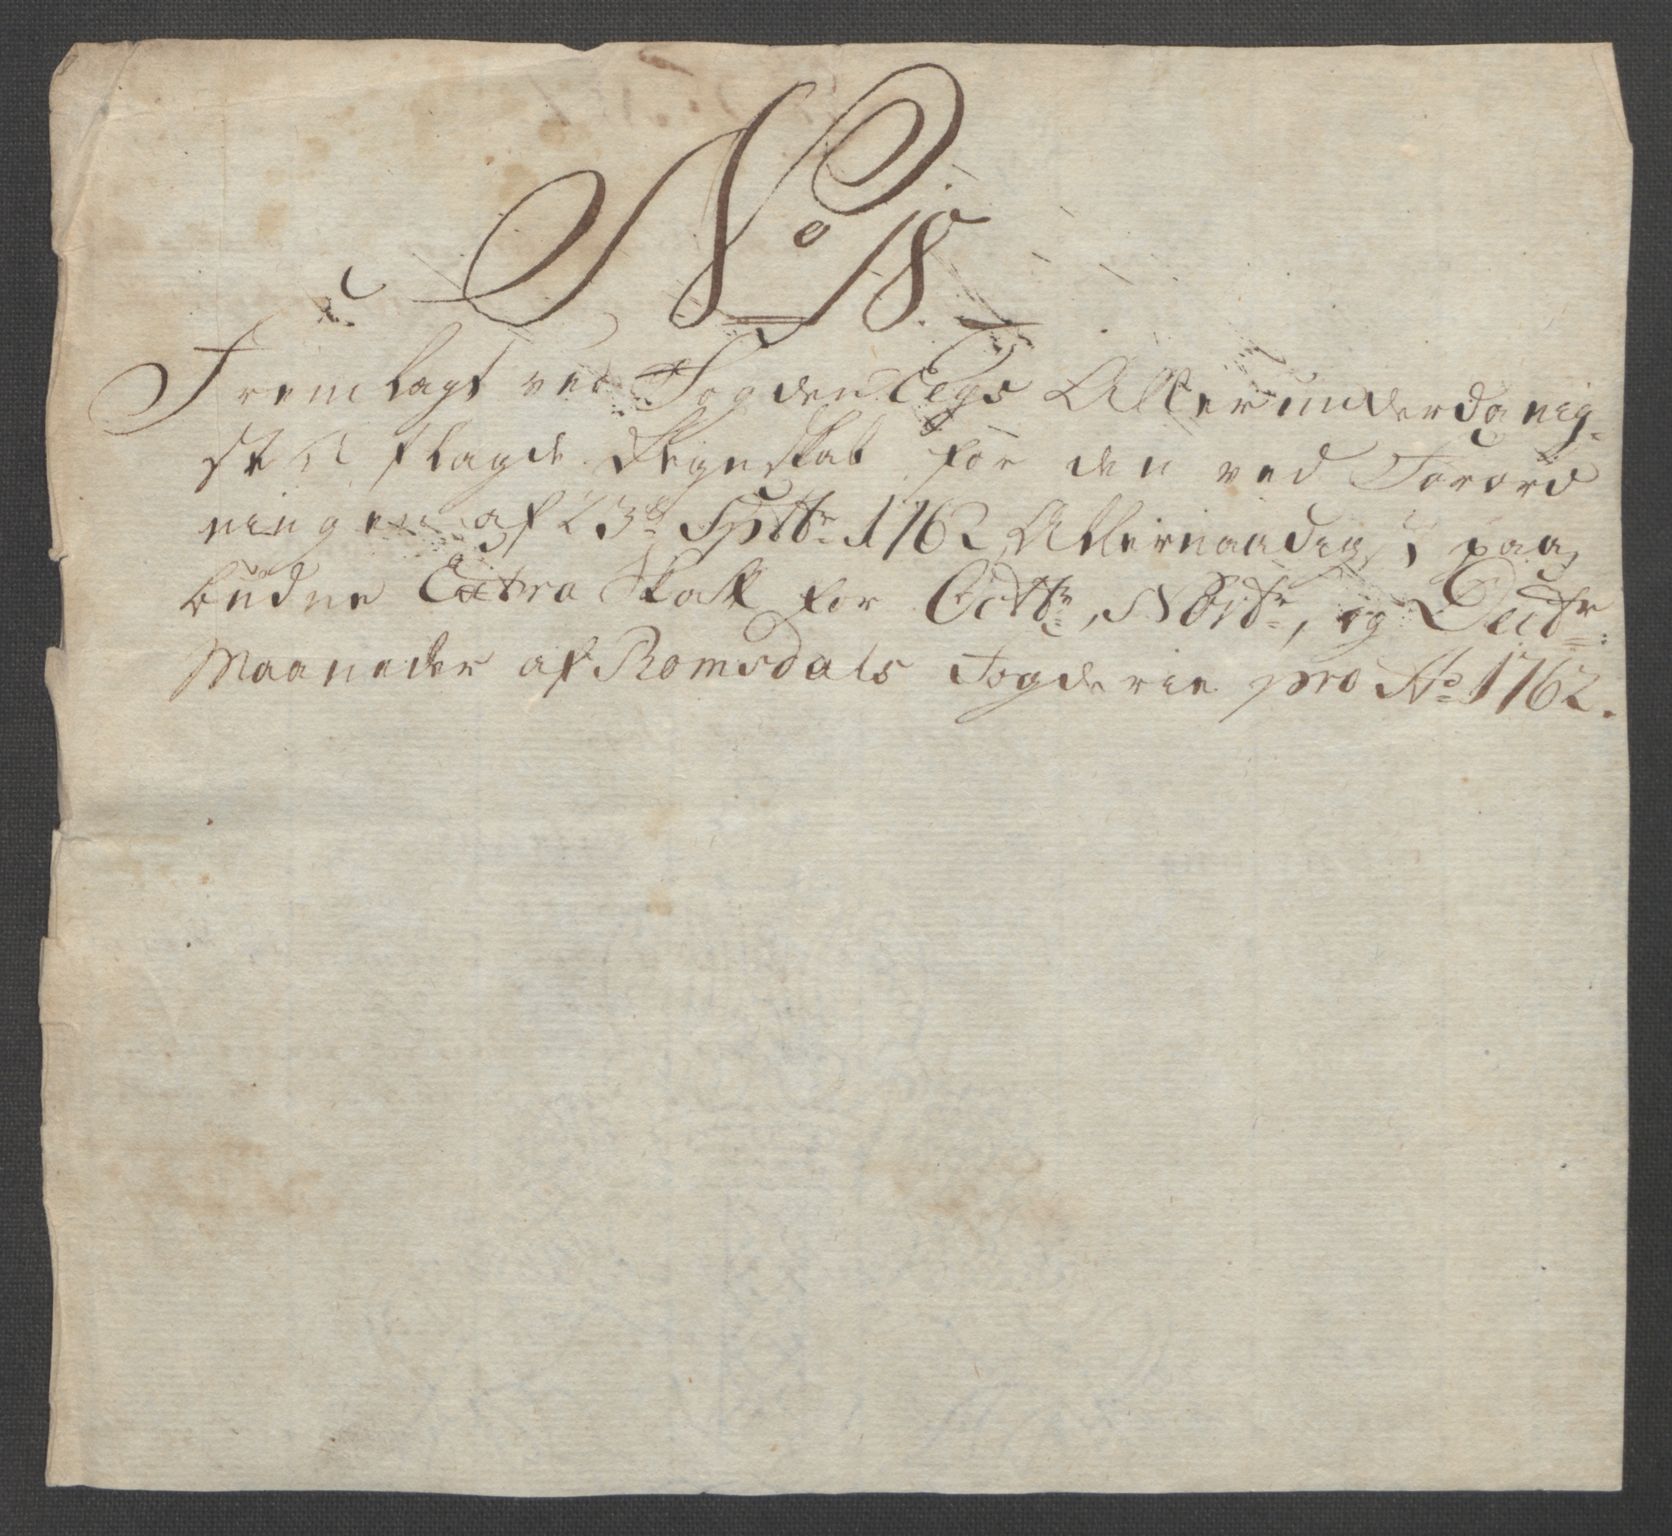 No 18.
Fremlagt ved Fogden Eegs Allerunderdanig-
st aflagde Regnskab for den ved Forord
ningen af 23de Sptbr 1762 Allernaadigst paa
budne Extra Skatt for Octbr, Novbr, og Decbr:
Maaneder af Romsdals Fogderie pro Ao 1762.